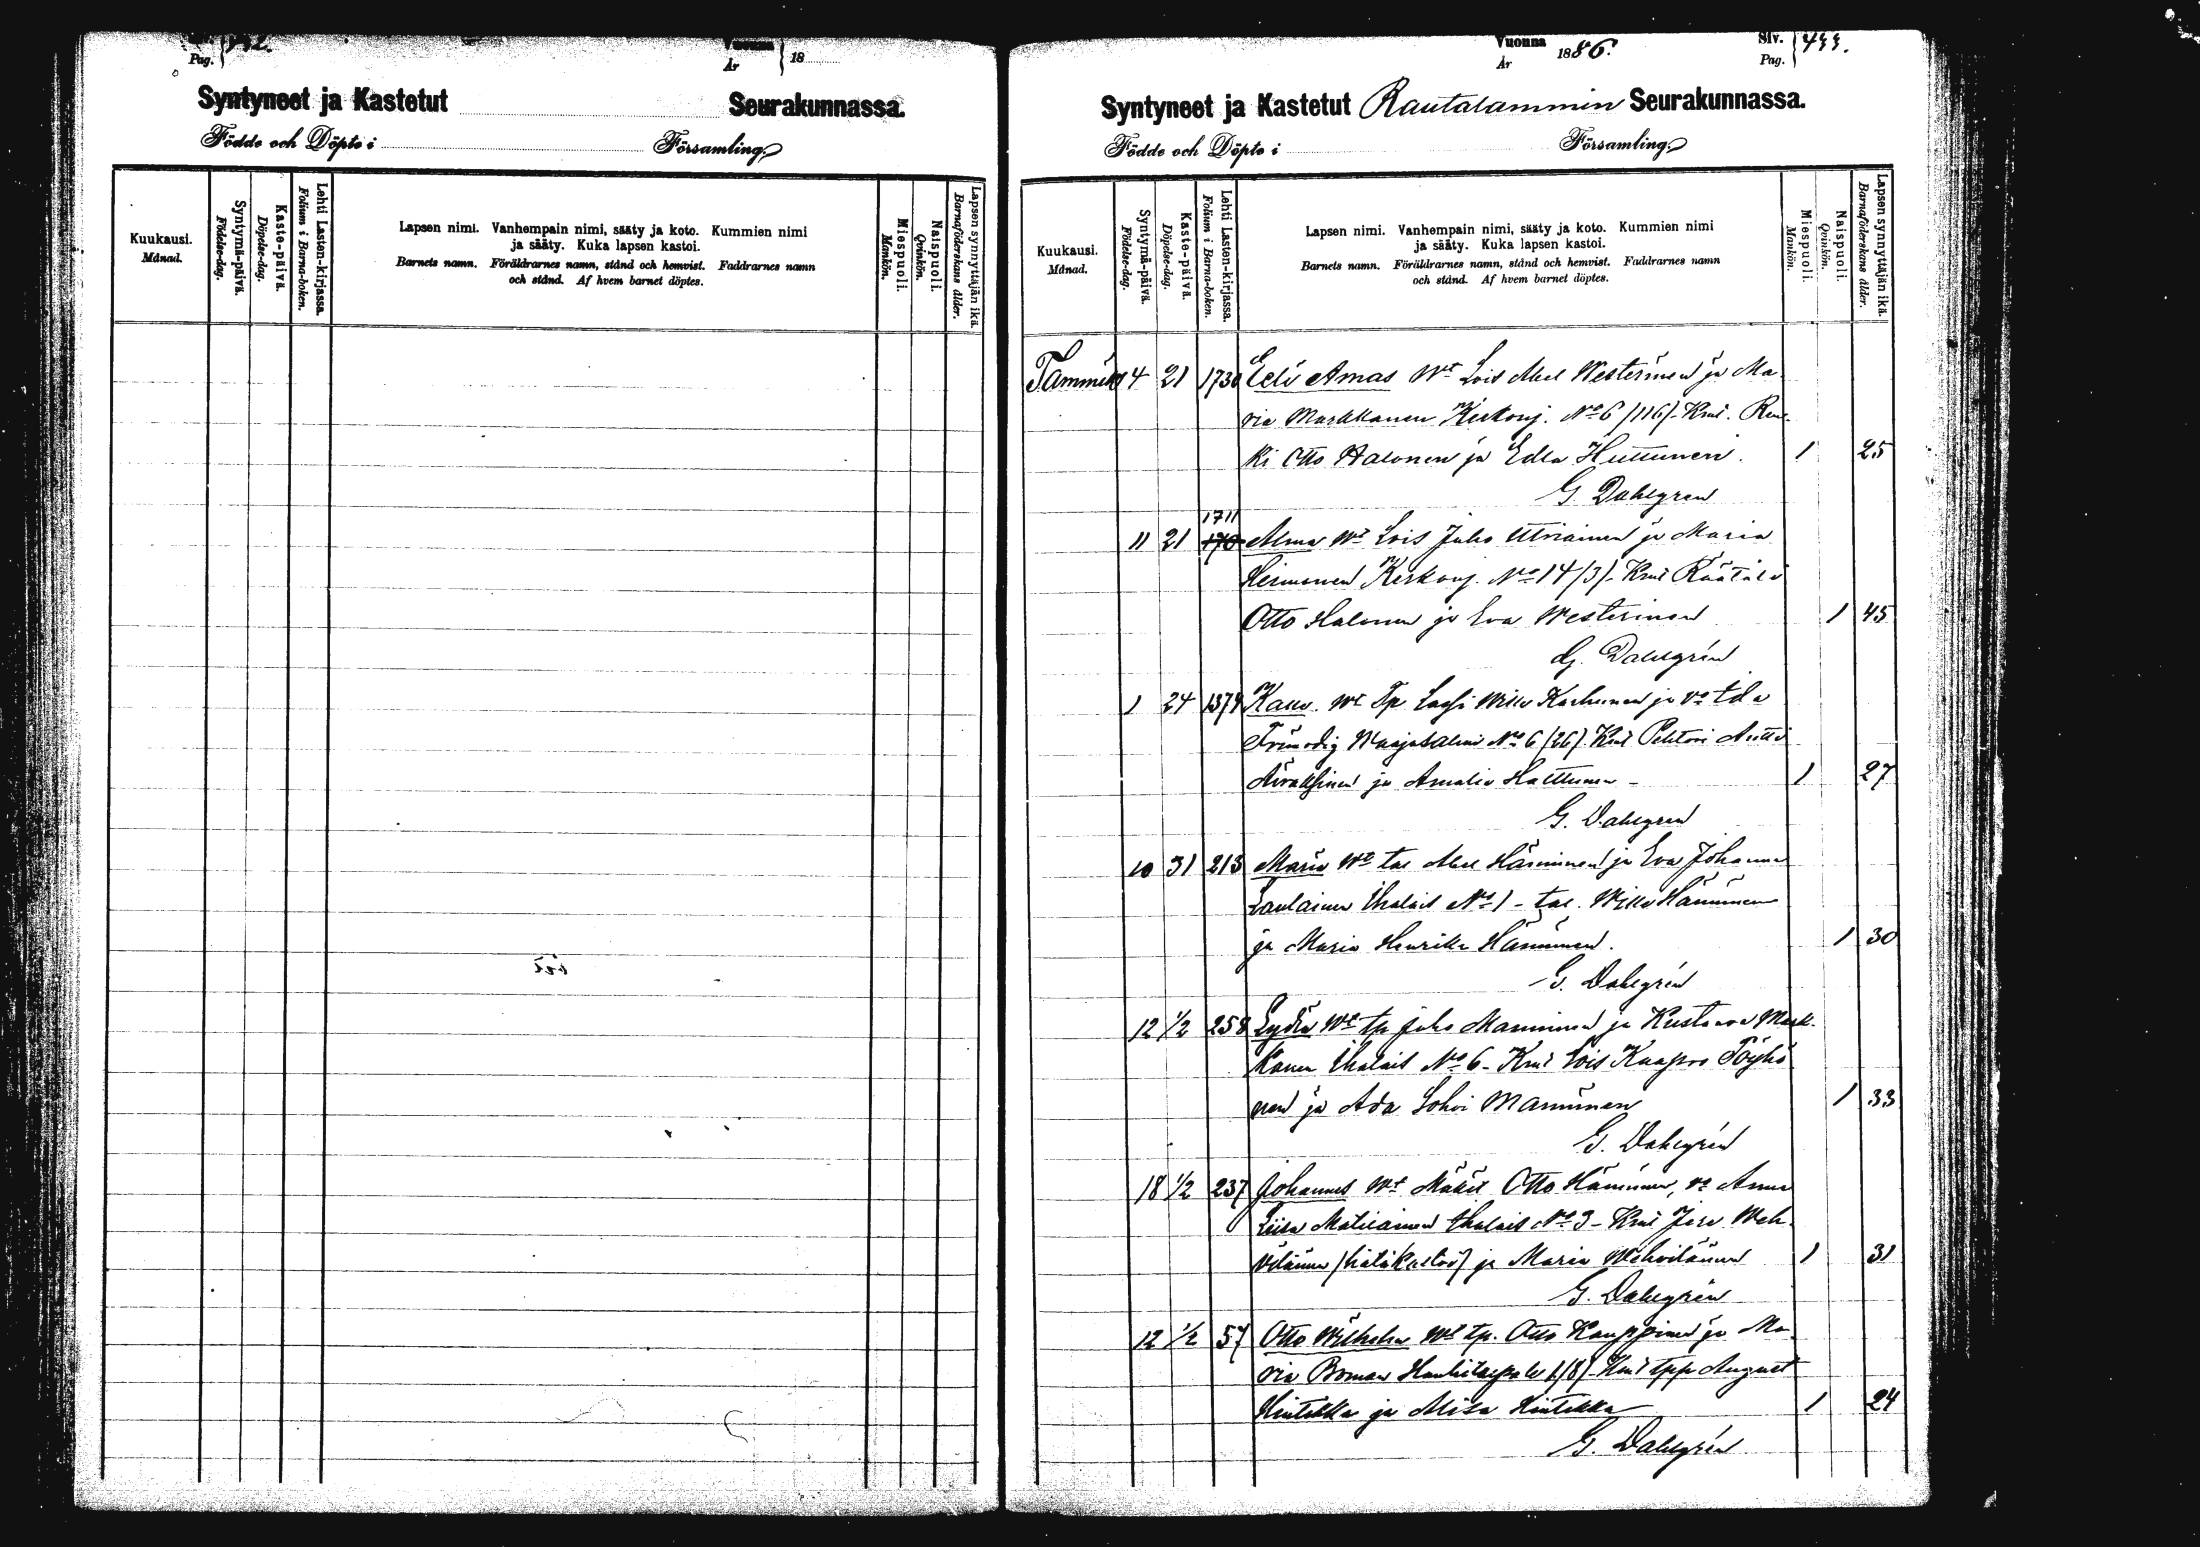 Pag.
Vuonna
År
18
Syntyneet ja Kastetut Seurakunnassa.
Födde och Döpte i Församling.
Kuukausi.
Månad.
Syntymä-päivä.
Födelse-dag.
Kaste-päivä.
Döpelse-dag.
Lehti Lasten-kirjassa.
Folium i Barna-boken.
Lapsen nimi. Vanhempain nimi, sääty ja koto. Kummien nimi
ja sääty. Kuka lapsen kastoi.
Barnets namn. Föräldrarnes namn, stånd och hemvist. Faddrarnes namn
och stånd. Af hvem barnet döptes.
Miespuoli.
Mankön.
Naispuoli.
Qvinkön.
Lapsen synnyttäjän ikä.
Barnaföderskans ålder.
Vuonna
År
1886.
Siv.
Pag.
Syntyneet ja Kastetut Rautalammin Seurakunnassa.
Födde och Döpte i Församling.
Kuukausi.
Månad.
Syntymä-päivä.
Födelse-dag.
Kaste-päivä.
Döpelse-dag.
Lehti Lasten-kirjassa.
Folium i Barna-boken.
Lapsen nimi. Vanhempain nimi, sääty ja koto. Kummien nimi
ja sääty. Kuka lapsen kastoi.
Barnets namn. Föräldrarnes namn, stånd och hemvist. Faddrarnes namn
och stånd. Af hvem barnet döptes.
Miespuoli.
Mankön.
Naispuoli.
Qvinkön.
Lapsen synnyttäjän ikä.
Barnaföderskans ålder.
Tammik 14 21 1730 Eeli Amas Wt Lois Westerinen ja Ma-
ria Markkanen Kerkonj. No 6 /116/- Kmt. Ren-
ki Otto Halonen ja Edla Huttunen. 1 25
G. Dahlgren
1711
11 21 Alma Wt Lois Juho ja Maria
Kerkonj. No 14 /3/- Kmt Räätäli
Otto Halonen ja Eva Westerinen 1 45
G. Dahlgrén
1 24 1374 Kalle. Wt Tp Wille Karhunen ja vo Ida
No 6 /26/. Kmt Antti
ja Amalia 1 27
G. Dahlgren
10 31 213 Maria Wt tal Hänninen ja Eva Johanna
Laulainen No 1 - tal. Wille Hänninen
ja Maria Henrika Hänninen. 1 30
G. Dahlgrén
12 1/2 258 Lydia Wt tp Juho Manninen ja Kustaava Mark-
kanen No 6 - Kmt Lois Kaapro Töyhö
nen ja Ada Sohvi Manninen 1 33
G. Dahlgrén
18 1/2 237 Johannes Wt Otto Hänninen, vo Anna
Liisa Matilainen No 3 - Kmt Weh-
viläinen /hätäkastoi/ ja Maria Wehviläinen 1 31
G. Dahlgrén
12 1/2 57 Otto Wilhelm Wt tp. Otto Kauppinen ja Ma-
ria Boman /8/ Kmt August
Hintikka ja Hintikka 1 24
G. Dahlgrén